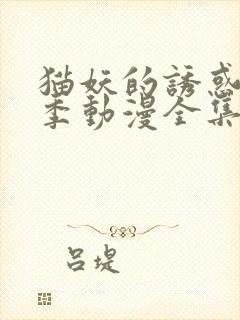 猫妖的誘惑
季動漫全集
呂堤